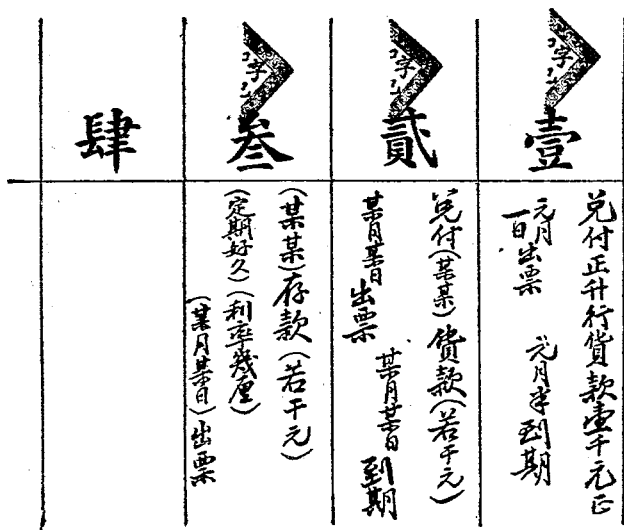 壹
兑付正升行貨款壹千元正
元月一日出票 元月半到期
貳
兑付(某某)貨款(若干元)
某月某日出票 某月某日到期
叁
(某某)存款(若干元)
(定期好久)(利率幾厘)
(某月某日)出票
肆